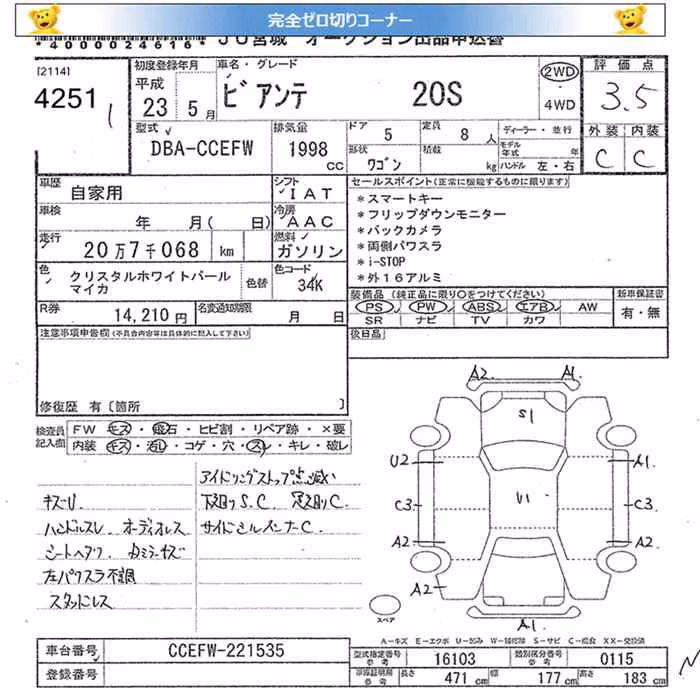 完全ゼロ切りコーナー
*4000024616* JU宮城 オークション出品申込書
[2114]
4251
初度登録年月
平成
23 5月
車名・グレード
ビアンテ 20S
2WD
4WD
評価点
3.5
外装 内装
C C
型式
DBA-CCEFW
排気量
1998 CC
ドア 5
定員 8人
形状 ワゴン
積載 kg
ディーラー・並行
モデル年式 年
ハンドル 左・右
車歴 自家用
シフト IAT
車検 年 月( 日)
冷房 AAC
走行 20万7千068 km
燃料 ガソリン
色 クリスタルホワイトパールマイカ
色替
色コード 34K
R券 14,210円
名変通知期限 月 日
セールスポイント(正常に機能するものに限ります)
*スマートキー
*フリップダウンモニター
*バックカメラ
*両側パワスラ
*i-STOP
*外16アルミ
装備品 (純正品に限り○をつけてください)
PS PW ABS エアB AW
SR ナビ TV カワ
新車保証書
有・無
後日品
注意事項申告欄(不具合内容等は具体的に記入して下さい)
修復歴 有〔箇所 〕
検査員記入欄
FW キズ・飛石・ヒビ割・リペア跡・×要
内装 キズ・汚れ・コゲ・穴・スレ・キレ・破レ
アイドリングストップ点滅
キズU
下廻りS.C. 足廻りC.
ハンドルスレ オーディオレス
サイドシルインナーC.
左パワスラ不調
スタッドレス
A2. A1.
S1
U2 A1.
U1
C3 C3
A2 A2
A2
A1.
スペア
A-キズ E-エクボ U-凹み W-補修跡 S-サビ C-腐食 XX-交換済
車台番号 CCEFW-221535
登録番号
型式指定番号 参考 16103
類別区分番号 参考 0115
車庫証明用 参考 長さ 471cm 幅 177cm 高さ 183cm